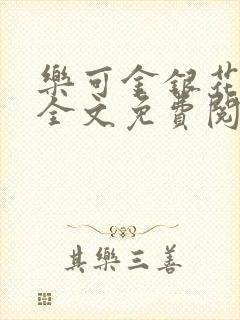 樂可金銀花
全文免費閱
其樂三善